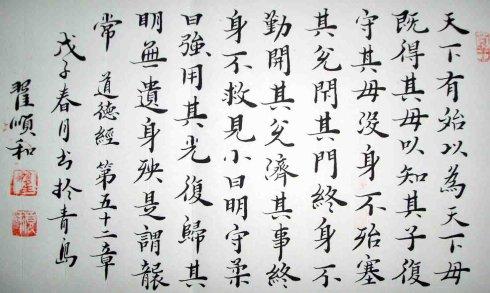 天下有始以為天下母
既得其母以知其子復
守其母没身不殆塞
其兌閉其門終身不
勤開其兌濟其事終
身不救見小曰明守柔
曰強用其光復歸其
明無遺身殃是謂襲
常 道德經 第五十二章
戊子春月书於青島
翟順和